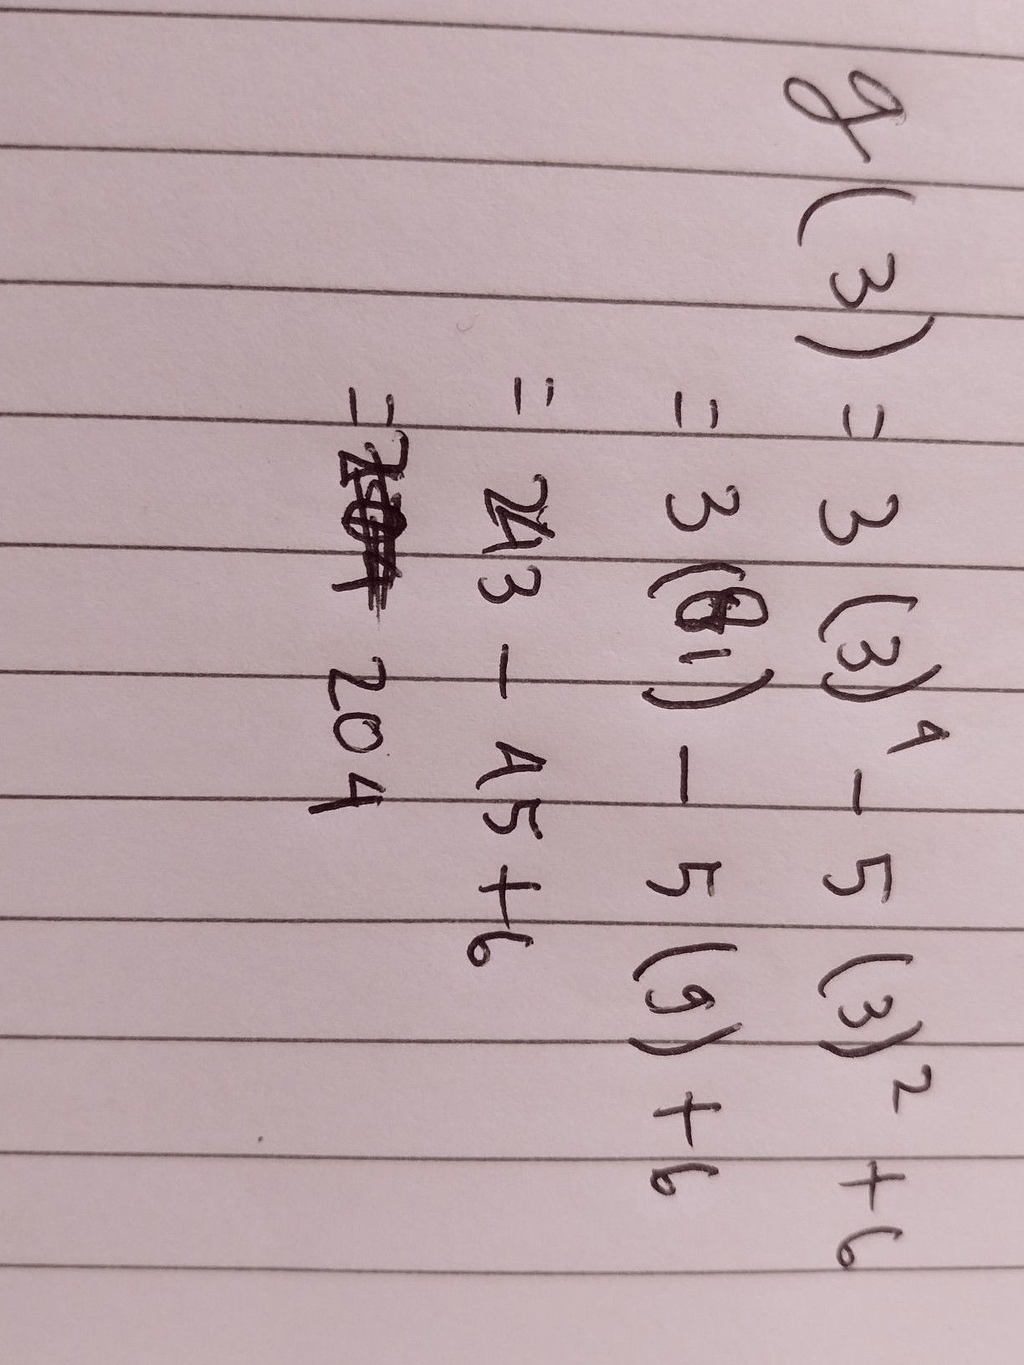 g(3) = 3(3)⁴ - 5(3)² + 6
= 3(81) - 5(9) + 6
= 243 - 45 + 6
= 204